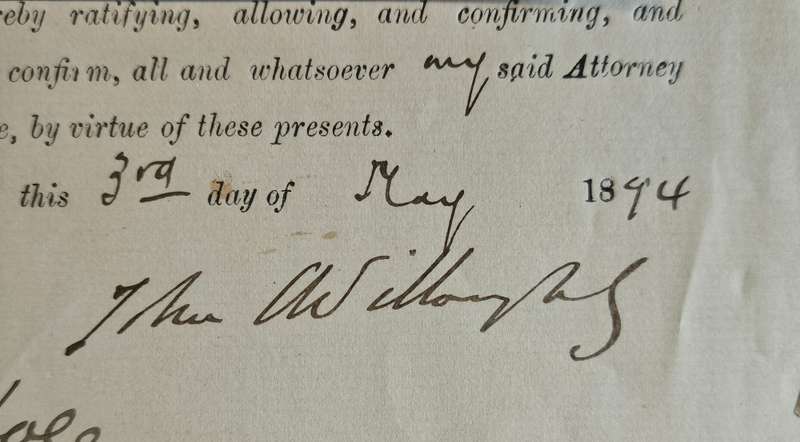 reby ratifying, allowing, and confirming, and
confirm, all and whatsoever my said Attorney
e, by virtue of these presents.
this 3rd day of May 1894
John C Willoughby